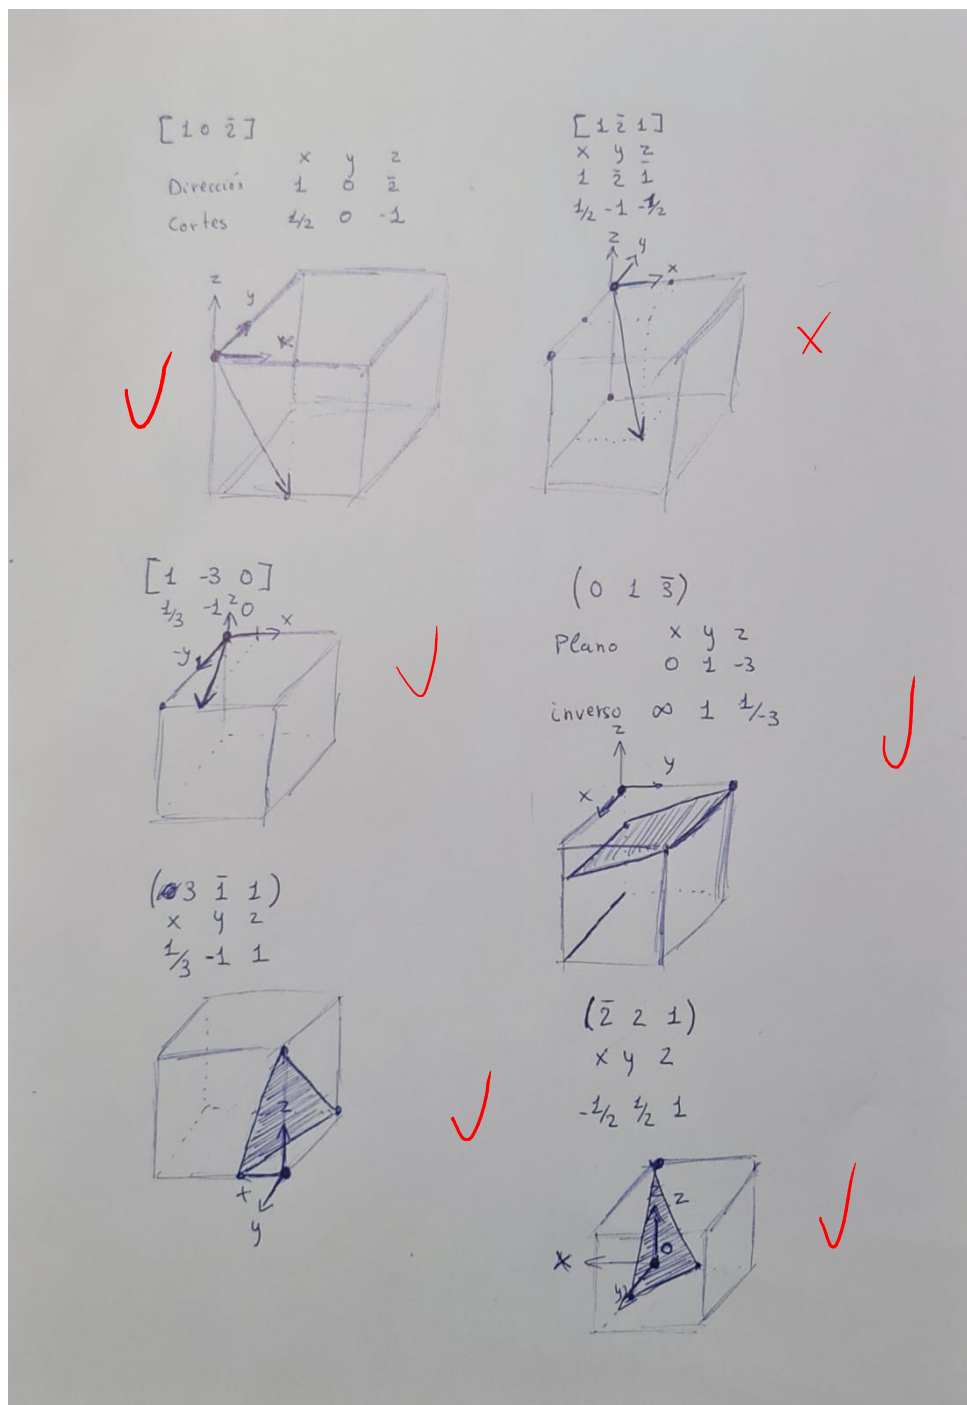 [1 0 2̄]
x y z
Dirección 1 0 2̄
Cortes 1/2 0 -1
z
y
x
[1 2̄ 1]
x y z
1 2̄ 1̄
1/2 -1 -1/2
z
y
x
[1 -3 0]
1/3 -1 0
z
x
-y
(0 1 3̄)
Plano x y z
0 1 -3
inverso ∞ 1 1/-3
z
y
x
(3 1̄ 1)
x y z
1/3 -1 1
z
x
y
(2̄ 2 1)
x y z
-1/2 1/2 1
z
x
O
y